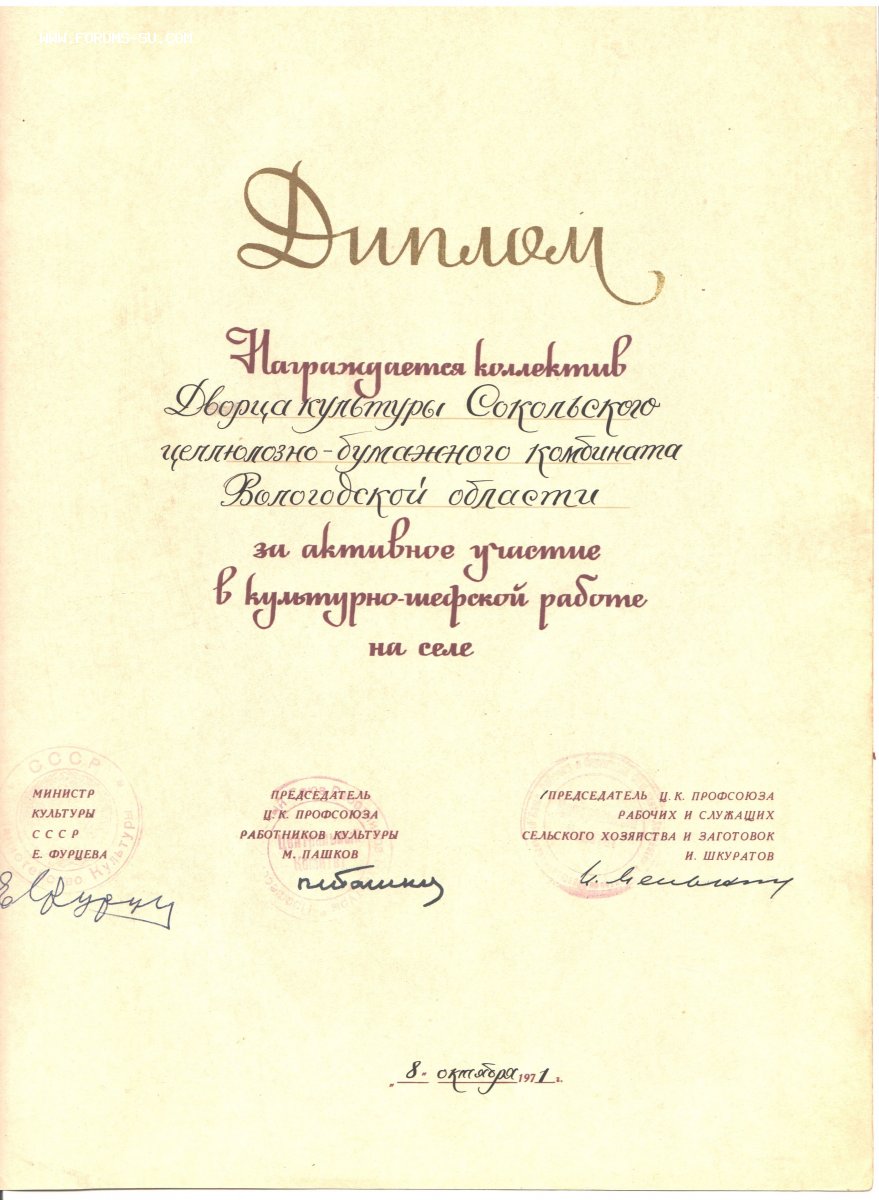 WWW.FORUMD-SU.COM
Диплом
Награждается коллектив
Дворца культуры Сокольского
целлюлозно-бумажного комбината
Вологодской области
за активное участие
в культурно-шефской работе
на селе
СССР
МИНИСТР
КУЛЬТУРЫ
СССР
Е. ФУРЦЕВА
Культуры
ПРЕДСЕДАТЕЛЬ
Ц.К. ПРОФСОЮЗА
РАБОТНИКОВ КУЛЬТУРЫ
М. ПАШКОВ
ПРЕДСЕДАТЕЛЬ Ц.К. ПРОФСОЮЗА
РАБОЧИХ И СЛУЖАЩИХ
СЕЛЬСКОГО ХОЗЯЙСТВА И ЗАГОТОВОК
И. ШКУРАТОВ
„8" октября 1971 г.